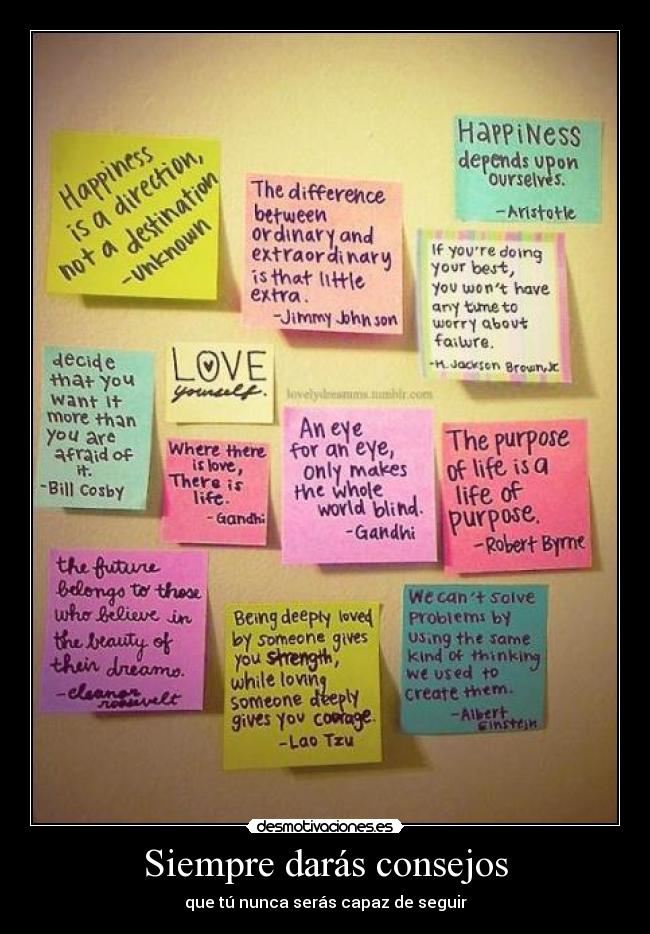 Happiness
is a direction,
not a destination
-unknown
The difference
between
ordinary and
extraordinary
is that little
extra.
-Jimmy Johnson
HAPPiNESS
depends upon
ourselves.
-Aristotle
If you're doing
your best,
you won't have
any time to
worry about
failure.
-H. Jackson Brown, Jr.
decide
that you
want it
more than
you are
afraid of
it.
-Bill Cosby
LOVE
yourself.
lovelydreamms.tumblr.com
Where there
is love,
There is
life.
-Gandhi
An eye
for an eye,
only makes
the whole
world blind.
-Gandhi
The purpose
of life is a
life of
purpose.
-Robert Byrne
the future
belongs to those
who believe in
the beauty of
their dreams.
-eleanor
roosevelt
Being deeply loved
by someone gives
you strength,
while loving
someone deeply
gives you courage.
-Lao Tzu
We can't solve
problems by
using the same
kind of thinking
we used to
create them.
-Albert
Einstein
desmotivaciones.es
Siempre darás consejos
que tú nunca serás capaz de seguir